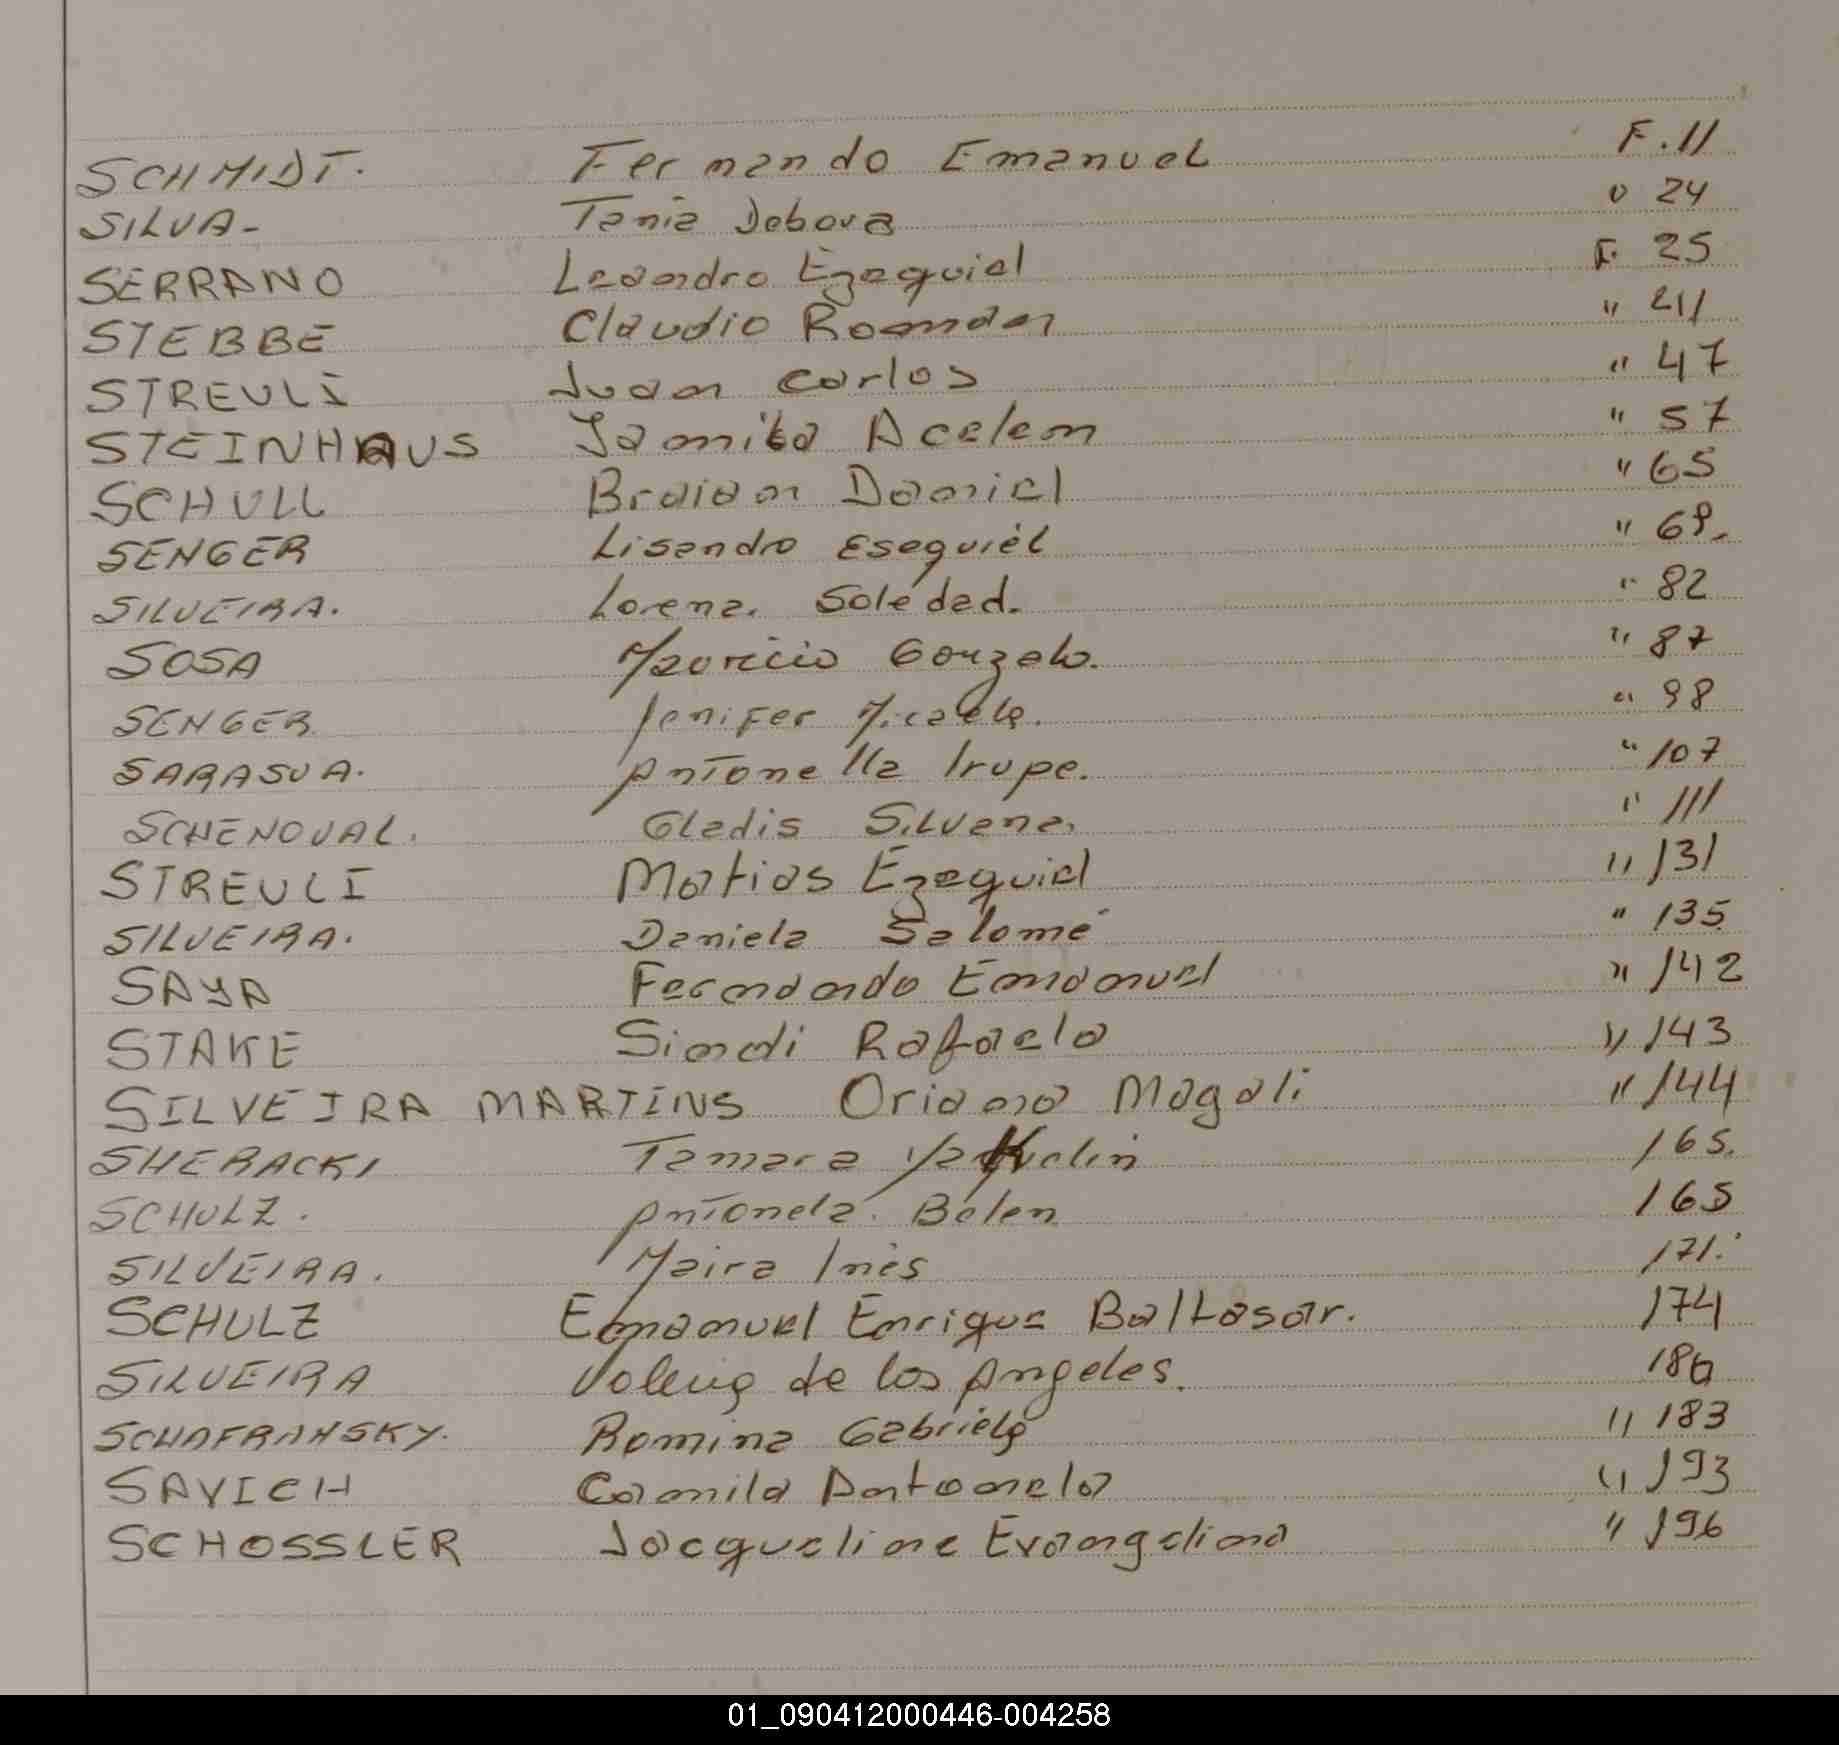 SCHMIDT. Fernando Emanuel F. 11
SILVA- Tania Debora " 24
SERRANO Leandro Ezequiel F. 25
STEBBE Claudio Roman " 211
STREULI Juan Carlos " 47
STEINHAUS Acelen " 57
SCHULL Braian Daniel " 65
SENGER Lisandro Esequiel " 69.
SILVEIRA. Lorena. Soledad. " 82
SOSA Mauricio Gonzalo. " 87
SENGER Jenifer Micaela. " 98
SARASUA. Antonella Irupe. " 107
SCHENOVAL. Gladis Silvana. " 111
STREULI Matias Ezequiel " 131
SILVEIRA. Daniela Salomé " 135
SAYA Fernando Emanuel " 142
STAKE Sindi Rafaela " 143
SILVEIRA MARTINS Oriana Magali " 144
SHERACKI Tamara 165.
SCHULZ. Antonela. Belen 165
SILVEIRA. Maira Inés 171.
SCHULZ Emanuel Enrique Baltasar. 174
SILVEIRA de los Angeles.
SCHAFRANSKY. Romina Gabriela " 183
SAVICH Camila Antonela " 193
SCHOSSLER Jacqueline Evangelina " 196
01_090412000446-004258